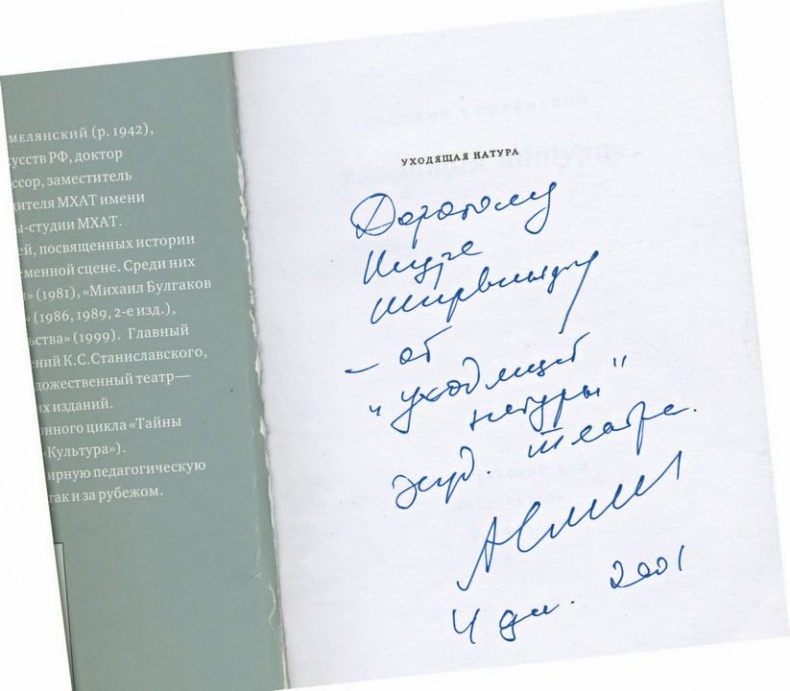 мелянский (р. 1942),
усств РФ, доктор
ссор, заместитель
ителя МХАТ имени
ы-студии МХАТ.
ей, посвященных истории
еменной сцене. Среди них
» (1981), «Михаил Булгаков
» (1986, 1989, 2-е изд.),
ьства» (1999). Главный
ений К.С.Станиславского,
дожественный театр—
их изданий.
онного цикла «Тайны
«Культура»).
ирную педагогическую
так и за рубежом.
УХОДЯЩАЯ НАТУРА
Дорогому
Ширвиндту
– от
"уходящей
натуры"
худ. театра.
2001